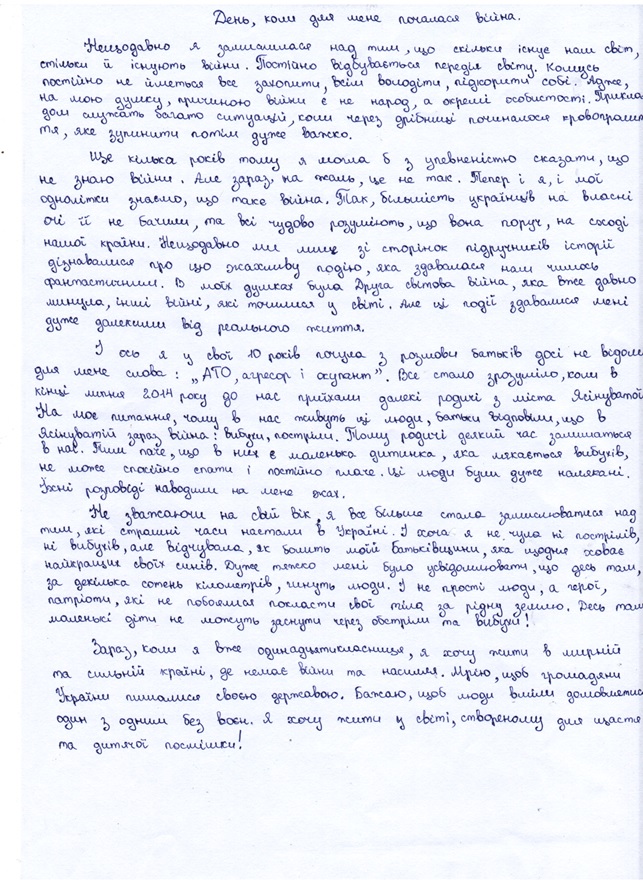 День, коли для мене почалася війна.
Нещодавно я замислилася над тим, що скільки існує наш світ,
стільки й існують війни. Постійно відбувається переділ світу. Комусь
постійно не йметься все захопити, всім володіти, підкорити собі. Адже,
на мою думку, причиною війни є не народ, а окремі особистості. Прикла
дом служать багато ситуацій, коли через дрібниці починалося кровопролит
тя, яке зупинити потім дуже важко.
Ще кілька років тому я могла б з упевненістю сказати, що
не знаю війни. Але зараз, на жаль, це не так. Тепер і я, і мої
однолітки знаємо, що таке війна. Так, більшість українців на власні
очі її не бачили, та всі чудово розуміють, що вона поруч, на сході
нашої країни. Нещодавно ми лише зі сторінок підручників історії
дізнавалися про цю жахливу подію, яка здавалася нам чимось
фантастичним. В моїх думках була Друга світова війна, яка вже давно
минула, інші війни, які точилися у світі. Але ці події здавалися мені
дуже далекими від реального життя.
І ось я у свої 10 років почула з розмови батьків досі не відомі
для мене слова: „АТО, агресор і окупант". Все стало зрозуміло, коли в
кінці липня 2014 року до нас приїхали далекі родичі з міста Ясинуватої
На моє питання, чому в нас живуть ці люди, батьки відповіли, що в
Ясинуватій зараз війна: вибухи, постріли. Тому родичі деякий час залишаться
в нас. Тим паче, що в них є маленька дитинка, яка лякається вибухів,
не може спокійно спати і постійно плаче. Ці люди були дуже налякані.
Їхні розповіді наводили на мене жах.
Не зважаючи на свій вік, я все більше стала замислюватися над
тим, які страшні часи настали в Україні. І хоча я не чула ні пострілів,
ні вибухів, але відчувала, як болить моїй батьківщині, яка щодня ховає
найкращих своїх синів. Дуже тяжко мені було усвідомлювати, що десь там,
за декілька сотень кілометрів, гинуть люди. І не прості люди, а герої,
патріоти, які не побоялися покласти свої тіла за рідну землю. Десь там
маленькі діти не можуть заснути через обстріли та вибухи!
Зараз, коли я вже одинадцятикласниця, я хочу жити в мирній
та сильній країні, де немає війни та насилля. Мрію, щоб громадяни
України пишалися своєю державою. Бажаю, щоб люди вміли домовлятися
один з одним без воєн. Я хочу жити у світі, створеному для щастя
та дитячої посмішки!